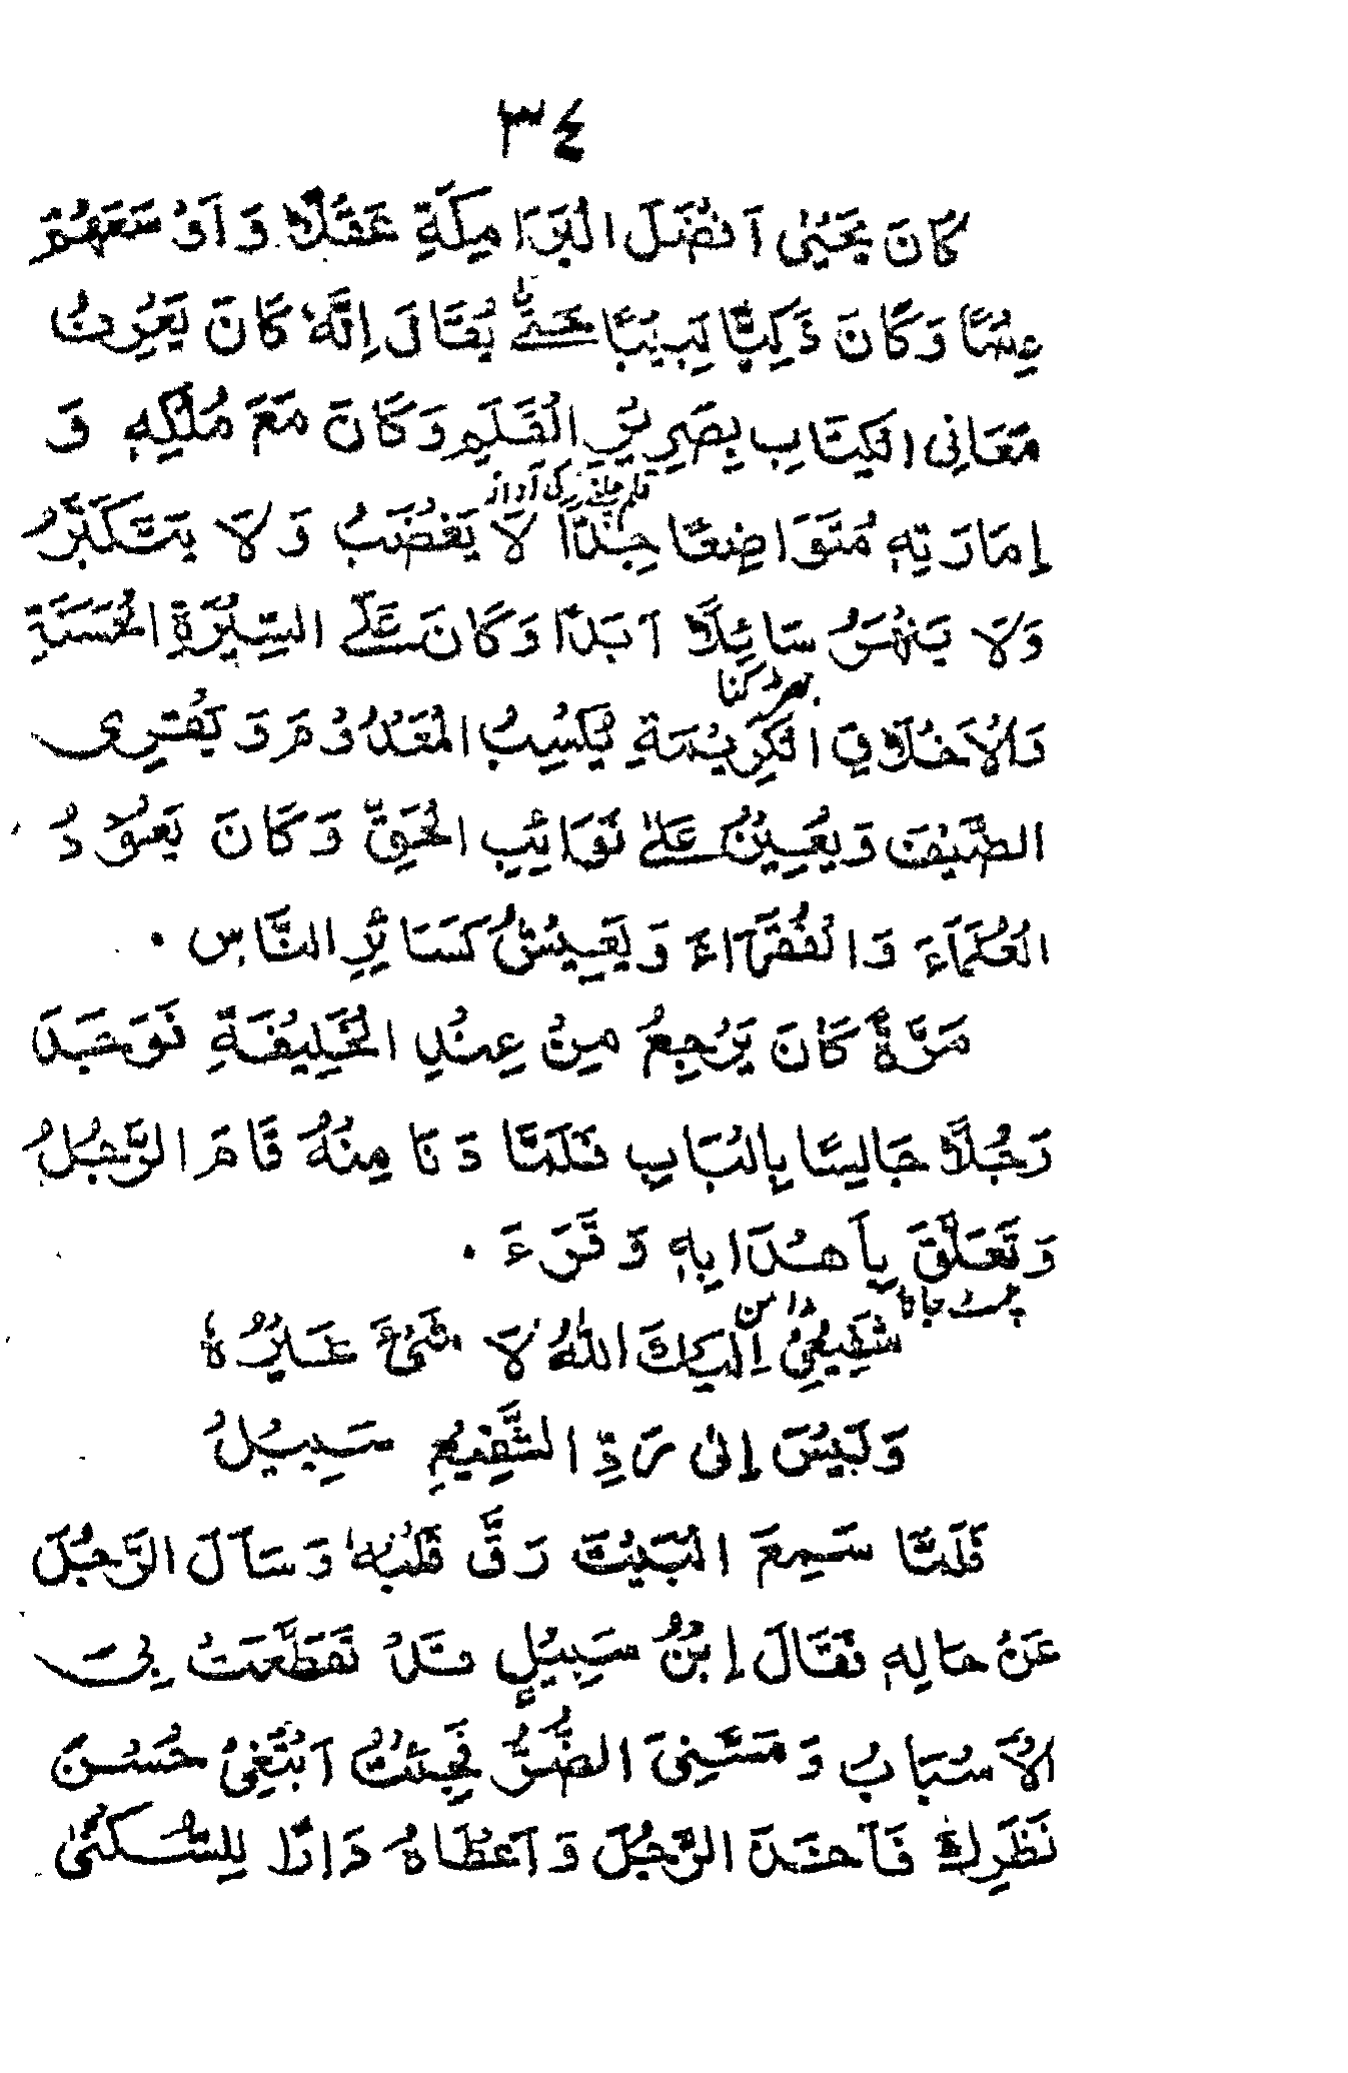 ٣٤
كَانَ يَحْيٰى اَفْضَلَ الْبَرَامِكَةِ عَقْلًا وَ اَوْسَعَهُمْ
عِلْمًا وَكَانَ ذَكِيًّا لَبِيْبًا حَتّٰى يُقَالَ اِنَّهٗ كَانَ يَعْرِفُ
مَعَانِى الْكِتَابِ بِصَرِيْرِ الْقَلَمِ وَكَانَ مَعَ مُلْكِهٖ وَ
قلم چلنے کی آواز
اِمَارَتِهٖ مُتَوَاضِعًا جِدًّا لَا يَغْضَبُ وَلَا يَتَكَبَّرُ
وَلَا يَنْهَرُ سَائِلًا اَبَدًا وَكَانَ عَلَى السِّيْرَةِ الْحَسَنَةِ
وَالْاَخْلَاقِ الْكَرِيْمَةِ يُكْسِبُ الْمَعْدُوْمَ وَ يَقْرِى
الضَّيْفَ وَيُعِيْنُ عَلٰى نَوَائِبِ الْحَقِّ وَكَانَ يَعُوْدُ
الْعُلَمَاءَ وَالْفُقَرَاءَ وَيَعِيْشُ كَسَائِرِ النَّاسِ ٠
مَرَّةً كَانَ يَرْجِعُ مِنْ عِنْدِ الْخَلِيْفَةِ فَوَجَدَ
رَجُلًا جَالِسًا بِالْبَابِ فَلَمَّا دَنَا مِنْهُ قَامَ الرَّجُلُ
وَتَعَلَّقَ بِاَهْدَابِهٖ وَقَرَءَ ٠
چمٹ جانا دامن
شَفِيْعِىْ اِلَيْكَ اللّٰهُ لَا شَىْءَ غَيْرُهٗ
وَلَيْسَ اِلٰى رَدِّ الشَّفِيْعِ سَبِيْلُ
فَلَمَّا سَمِعَ الْبَيْتَ رَقَّ قَلْبُهٗ وَسَاَلَ الرَّجُلَ
عَنْ حَالِهٖ فَقَالَ اِبْنُ سَبِيْلٍ قَدْ تَقَطَّعَتْ بِىَ
الْاَسْبَابُ وَمَسَّنِىَ الضُّرُّ فَجِئْتُ اَبْتَغِىْ حُسْنَ
نَظَرِكَ فَاَخَذَ الرَّجُلَ وَاَعْطَاهُ دَارًا لِلسُّكْنٰى